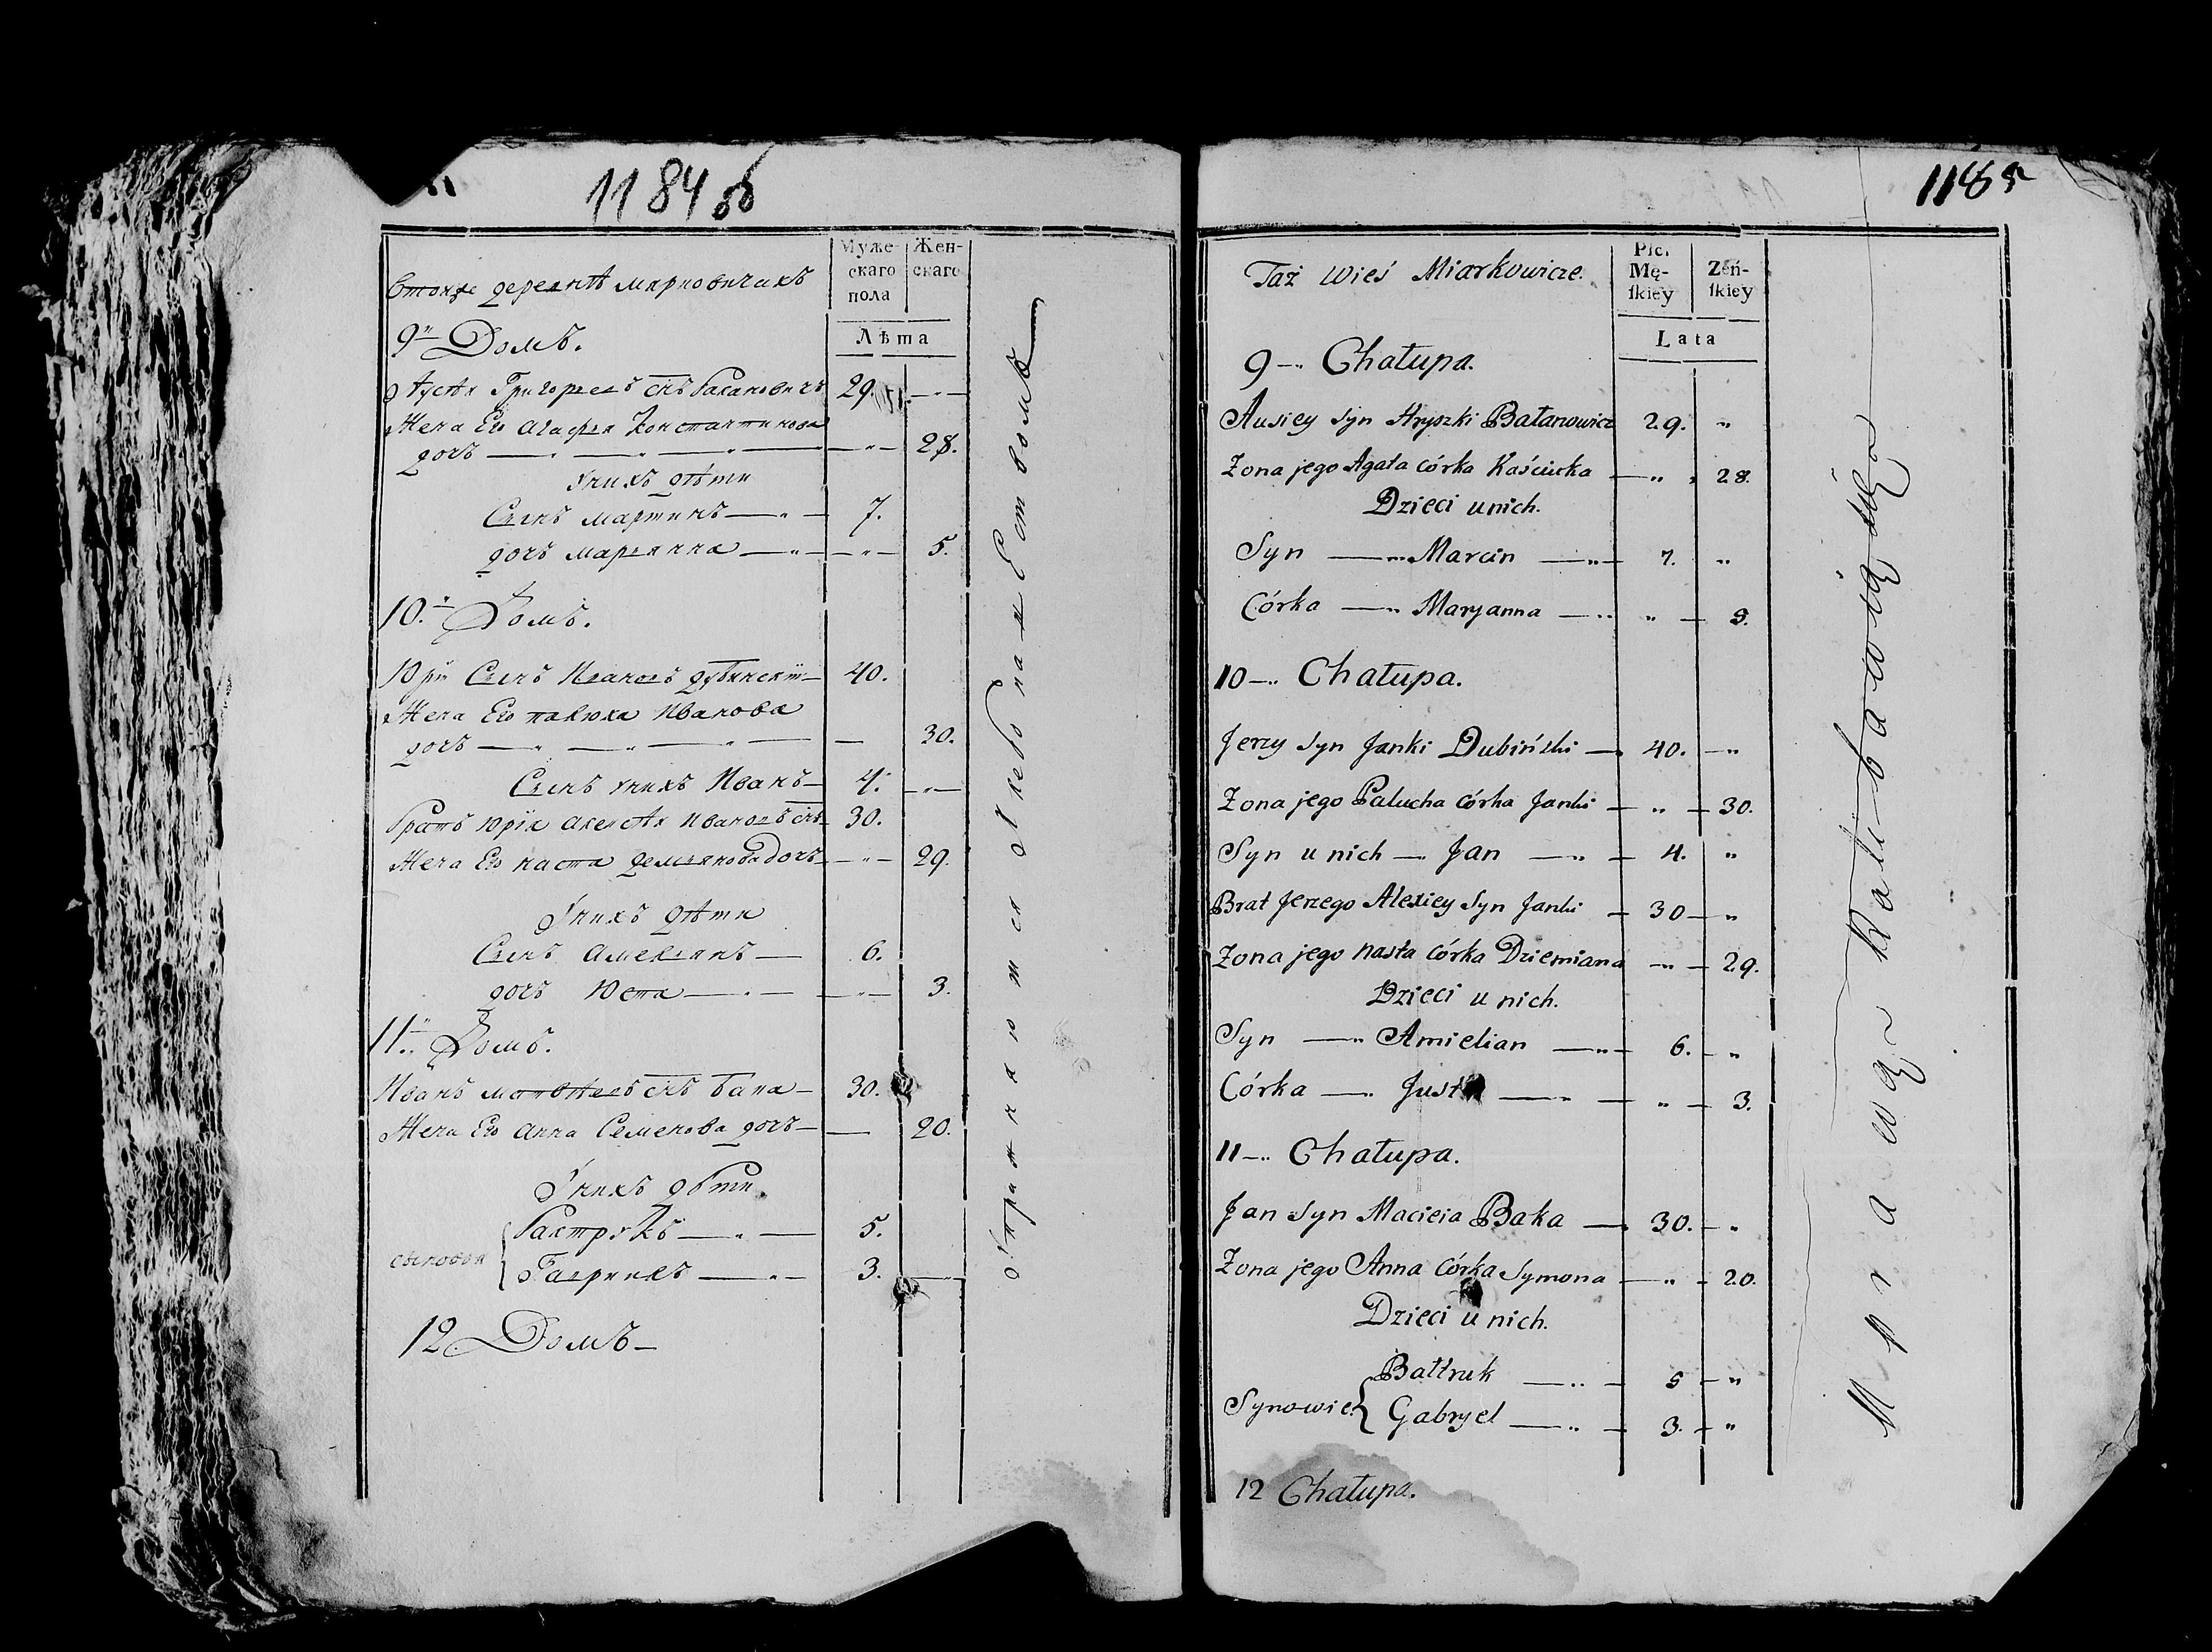 1184 об
втойже деревнѣ мирковичихъ
Муже-
скаго
пола
Жен-
скаго
Лѣта
9й Домъ.
Аусѣй Григорьевъ снъ Балановичъ 29.
Жена Его Агафья Константинова
дочь 28.
Унихъ дѣти
Сынъ мартинъ 7.
дочъ марьянна 5.
10.й Домъ.
Юрiй Сынъ Ивановъ дубинскiй 40.
Жена Его палюха Иванова
дочъ 30.
Сынъ унихъ Иванъ 4.
братъ Юрiя алексѣй Ивановъ снъ 30.
Жена Его наста демьянова дочъ 29.
Унихъ дѣти
Сынъ амельянъ 6.
дочъ Юста 3.
11.й Домъ.
Иванъ матвѣевъ снъ бака 30.
Жена Его Анна Семенова дочъ 20.
Унихъ дѣти.
сыновья
Балтрукъ 5.
Гаврiилъ 3.
12 Домъ
1185
Taż Wieś Miarkowicze.
Płci
Mę-
ſkiey
Żeń-
ſkiey
Lata
9 Chałupa.
Ausiey Syn Hryszki Bałanowicz 29. "
Żona jego Agata córka Kaściucka " 28.
Dzieci u nich.
Syn Marcin 7. "
Córka Maryanna " 5.
10 Chałupa.
Jerzy Syn Janki Dubiński 40. "
Żona jego Palucha córka Janki " 30.
Syn u nich Jan 4. "
Brat Jerzego Alexiey Syn Janki 30 "
Żona jego Nasta córka Dziemiana " 29.
Dzieci u nich.
Syn Amielian 6. "
Córka Justa " 3.
11 Chałupa.
Jan Syn Macieia Baka 30. "
Żona jego Anna Córka Symona " 20.
Dzieci u nich.
Synowie
Bałtruk 5 "
Gabryel 3. "
12 Chałupa.